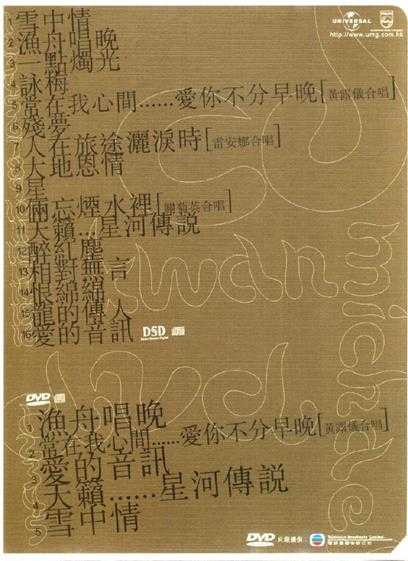 UNIVERSAL
PHILIPS
http://www.umg.com.hk
1 雪中情
2 漁舟唱晚
3 一點燭光
4 詠梅
5 常在我心間......愛你不分早晚[黃露儀合唱]
6 殘夢
7 人在旅途灑淚時[雷安娜合唱]
8 大地恩情
9 星
10 兩忘煙水裡[關菊英合唱]
11 天籟...星河傳説
12 醉紅塵
13 相對無言
14 恨綿綿
15 龍的傳人
16 愛的音訊
DSD
kwan
michael
DVD
1 漁舟唱晚
2 常在我心間......愛你不分早晚[黃露儀合唱]
3 愛的音訊
4 天籟......星河傳説
5 雪中情
DVD
Television Broadcasts Limited
電視廣播有限公司